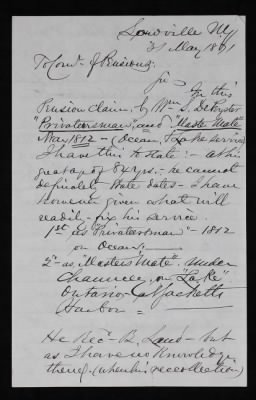 Lowville NY
31 May 1871
To Com. of Pensions;
Sir
In this
Pension claim, by Wm S. DePeyster
"Privateersman", and "Master Mate"
May 1812 - (Ocean & Lake service)
I have this to State: - at his
great age of 84 yrs - he cannot
definitely State dates - I have
however given what will
readily fix his service.
1st as "Privateersman" - 1812
on Ocean; -
2d as "Masters Mate" under
Chauncey, on "Lake"
Ontario & Sacketts
Harbor =
He Recd B. Land - but
as I have no Knowledge
thereof - (when his recollection)